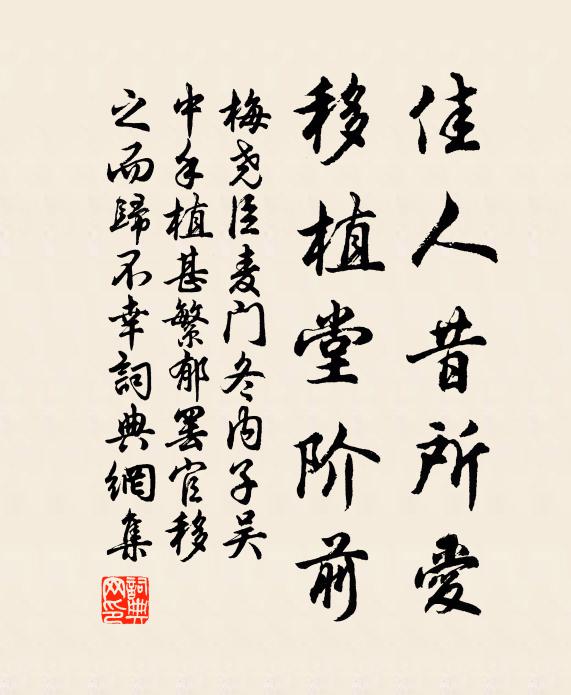 佳人昔所愛
移植堂阶前
梅尧臣麦门冬内子吴
中手植甚繁郁罢官移
之而歸不幸詞典網集
詞典网印